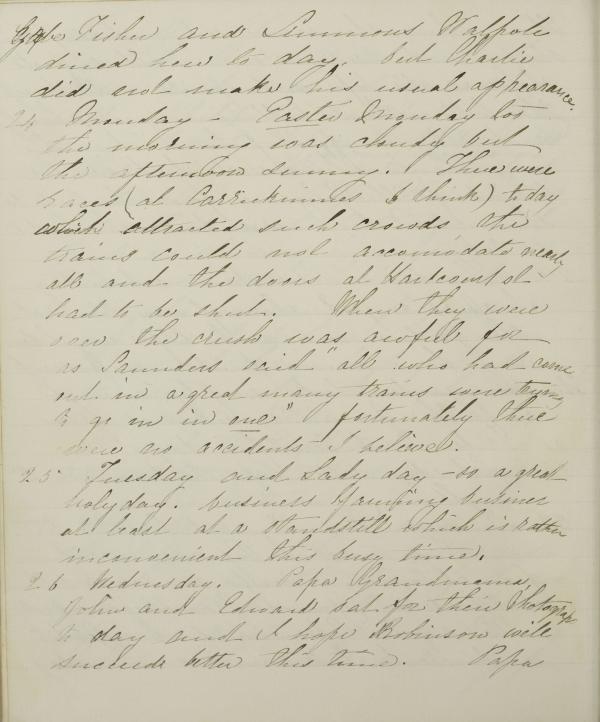 Fisher and Simmons Walpole
dined here to day. but Charlie
did not make his usual appearance.
24 Monday - Easter Monday too
the morning was cloudy but
the afternoon sunny. There were
races (at Carrickmines I think) to day
which attracted such crowds the
trains could not accomodate nearly
all and the doors at Harcourt st
had to be shut. When they were
over the crush was awful for
as Saunders said "all who had come
out in a great many trains were trying
to go in in one" fortunately there
were no accidents I believe.
25 Tuesday and Lady day - so a great
holyday. business farming business
at least at a standstill which is rather
inconvenient this busy time.
26 Wednesday. Papa Grandmama,
John and Edward sat for their Photograph
to day and I hope Robinson will
succeede better this time. Papa